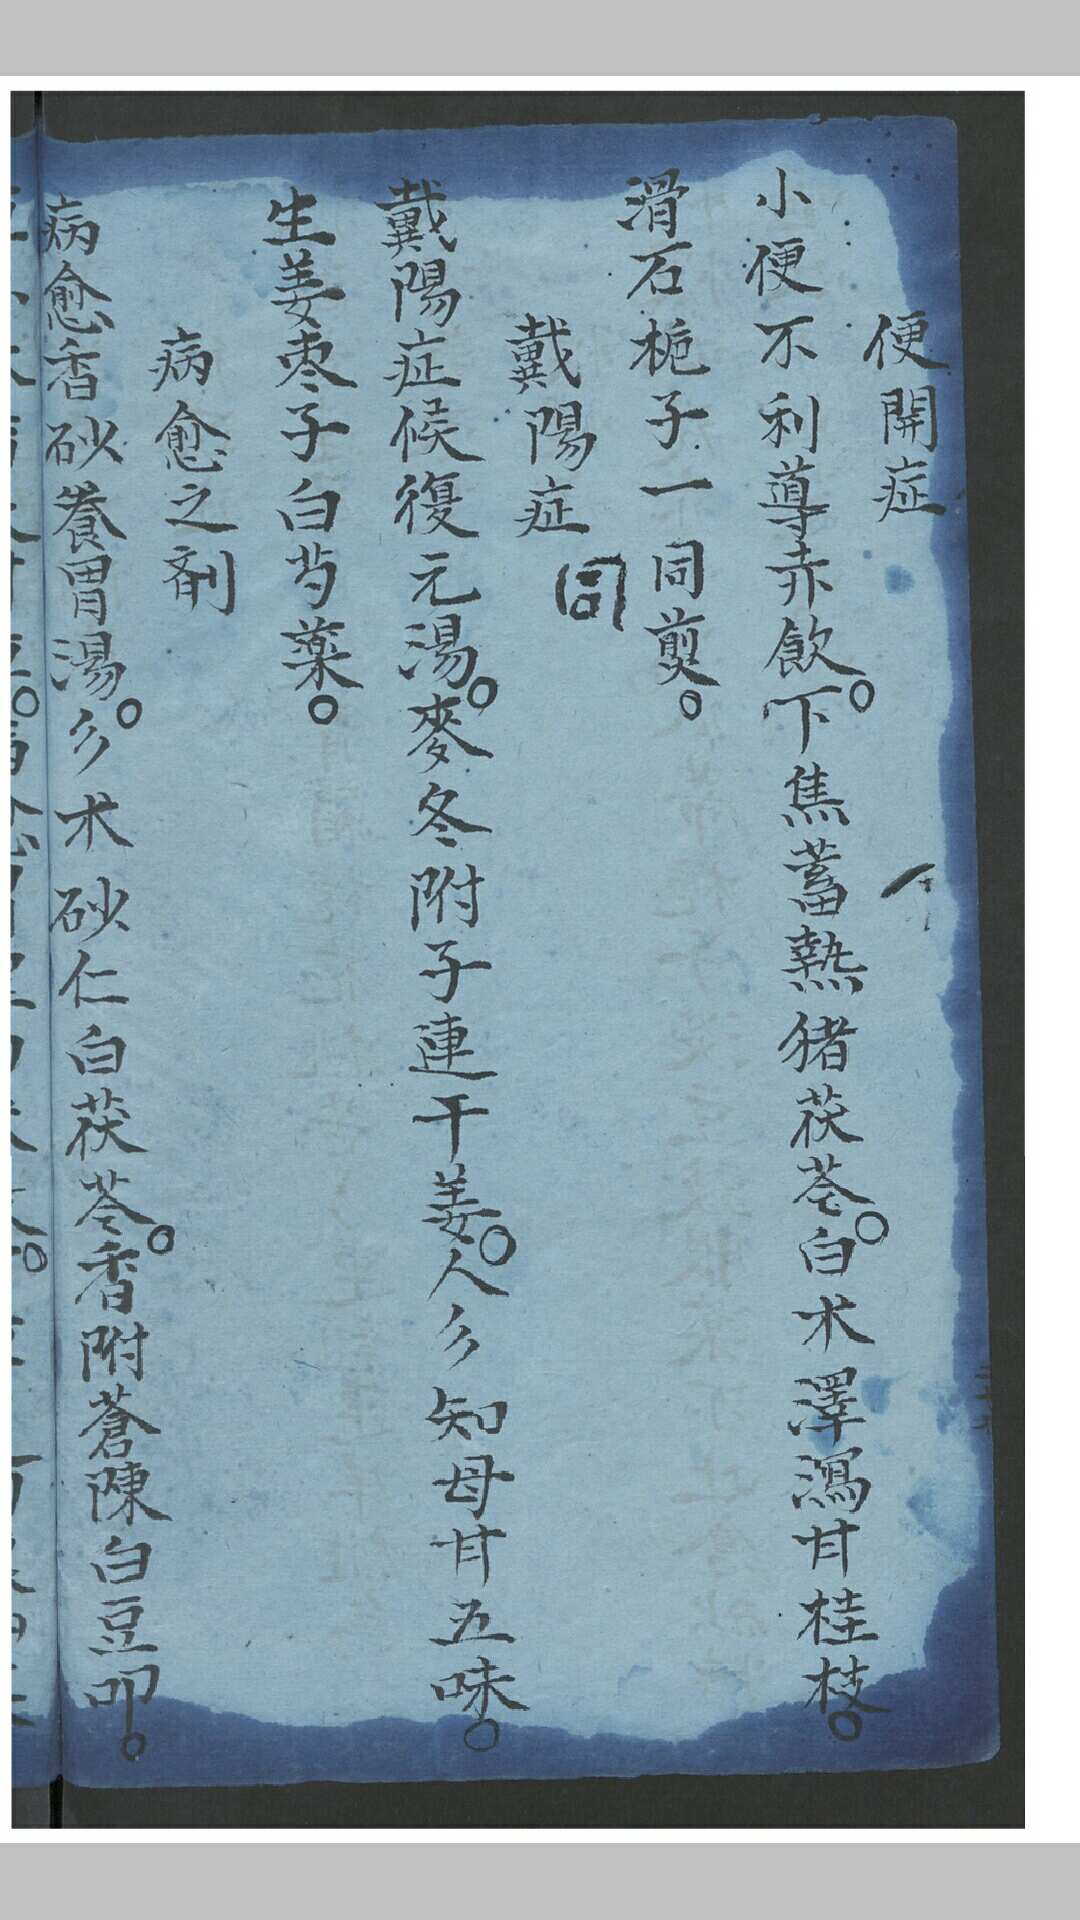 便開症
小便不利導赤飲。下焦蓄熱猪茯苓。白术澤瀉甘桂枝。
滑石梔子一同煎。
戴陽症
戴陽症候復元湯。麥冬附子連干姜。人參知母甘五味。
生姜枣子白芍薬。
病愈之剤
病愈香砂養胃湯。參术砂仁白茯苓。香附蒼陳白豆叩。